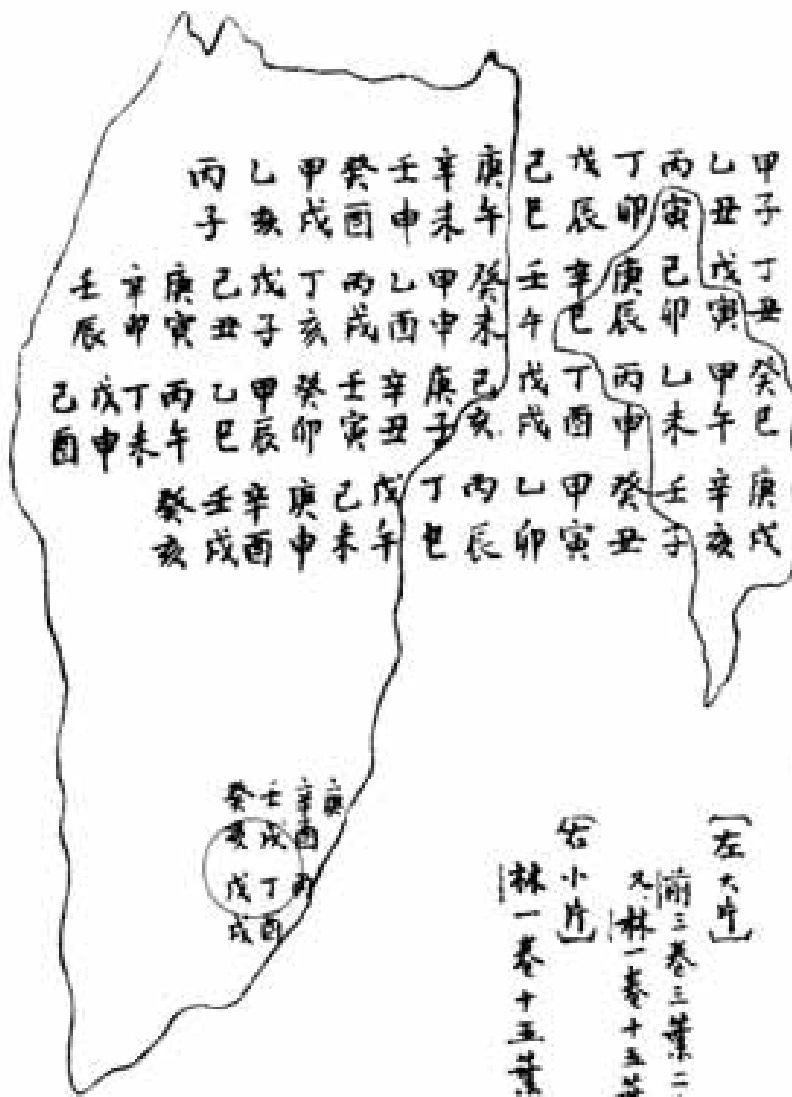 甲子 乙丑 丙寅 丁卯 戊辰 己巳 庚午 辛未 壬申 癸酉 甲戌 乙亥 丙子
丁丑 戊寅 己卯 庚辰 辛巳 壬午 癸未 甲申 乙酉 丙戌 丁亥 戊子 己丑 庚寅 辛卯 壬辰
癸巳 甲午 乙未 丙申 丁酉 戊戌 己亥 庚子 辛丑 壬寅 癸卯 甲辰 乙巳 丙午 丁未 戊申 己酉
庚戌 辛亥 壬子 癸丑 甲寅 乙卯 丙辰 丁巳 戊午 己未 庚申 辛酉 壬戌 癸亥
庚
辛酉 丙
壬戌 丁酉
癸亥 戊戌
[左大片]
前三卷三葉二
又林一卷十五葉
[右小片]
林一卷十五葉